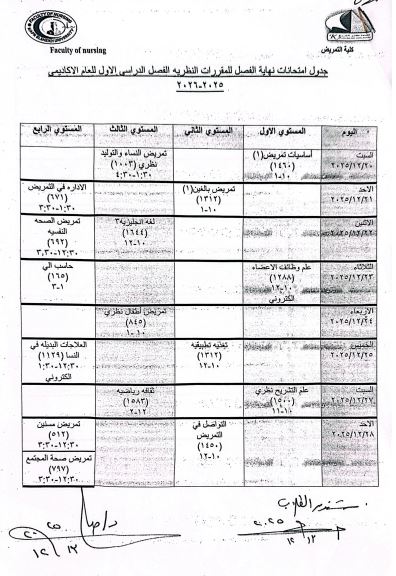 Faculty of nursing
كلية التمريض
جدول امتحانات نهاية الفصل للمقررات النظريه الفصل الدراسي الاول للعام الاكاديمي
٢٠٢٥-٢٠٢٦
اليوم المستوي الاول المستوي الثاني المستوي الثالث المستوي الرابع
السبت
٢٠٢٥/١٢/٢٠
أساسيات تمريض(١)
(١٤٦٠)
١-١٠
تمريض النساء والتوليد
نظري (١٠٠٣)
١:٣٠-٤:٣٠
الاحد
٢٠٢٥/١٢/٢١
تمريض بالغين(١)
(١٣١٢)
١-١٠
الاداره في التمريض
(٦٧١)
١:٣٠-٣:٣٠
الاثنين
٢٠٢٥/١٢/٢٢
لغه انجليزيه٣
(١٦٤٤)
١٠-١٢
تمريض الصحه
النفسيه
(٦٩٢)
١٢:٣٠-٣:٣٠
الثلاثاء
٢٠٢٥/١٢/٢٣
علم وظائف الاعضاء
(١٢٨٨)
١٠-١٢
الكتروني
حاسب الي
(١٦٥)
١-٣
الاربعاء
٢٠٢٥/١٢/٢٤
تمريض أطفال نظري
(٨٤٥)
١٠-١
الخميس
٢٠٢٥/١٢/٢٥
تغذيه تطبيقيه
(١٣١٢)
١٠-١٢
العلاجات البديله في
النسا (١١٢٩)
١٢:٣٠-١:٣٠
الكتروني
السبت
٢٠٢٥/١٢/٢٧
علم التشريح نظري
(١٥٠٠)
١٠-١١
ثقافه رياضيه
(١٥٨٣)
١٢-٢
الاحد
٢٠٢٥/١٢/٢٨
التواصل في
التمريض
(١٤٥٠)
١٠-١٢
تمريض مسنين
(٥١٢)
١٢:٣٠-٣:٣٠
تمريض صحة المجتمع
(٧٩٧)
١٢:٣٠-٣:٣٠